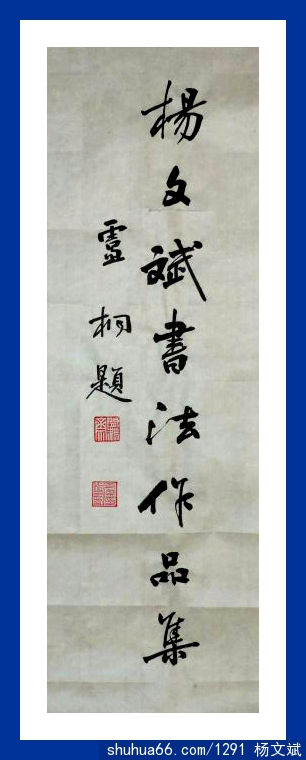 楊文斌書法作品集
盧桐題
shuhua66.com/1291 杨文斌